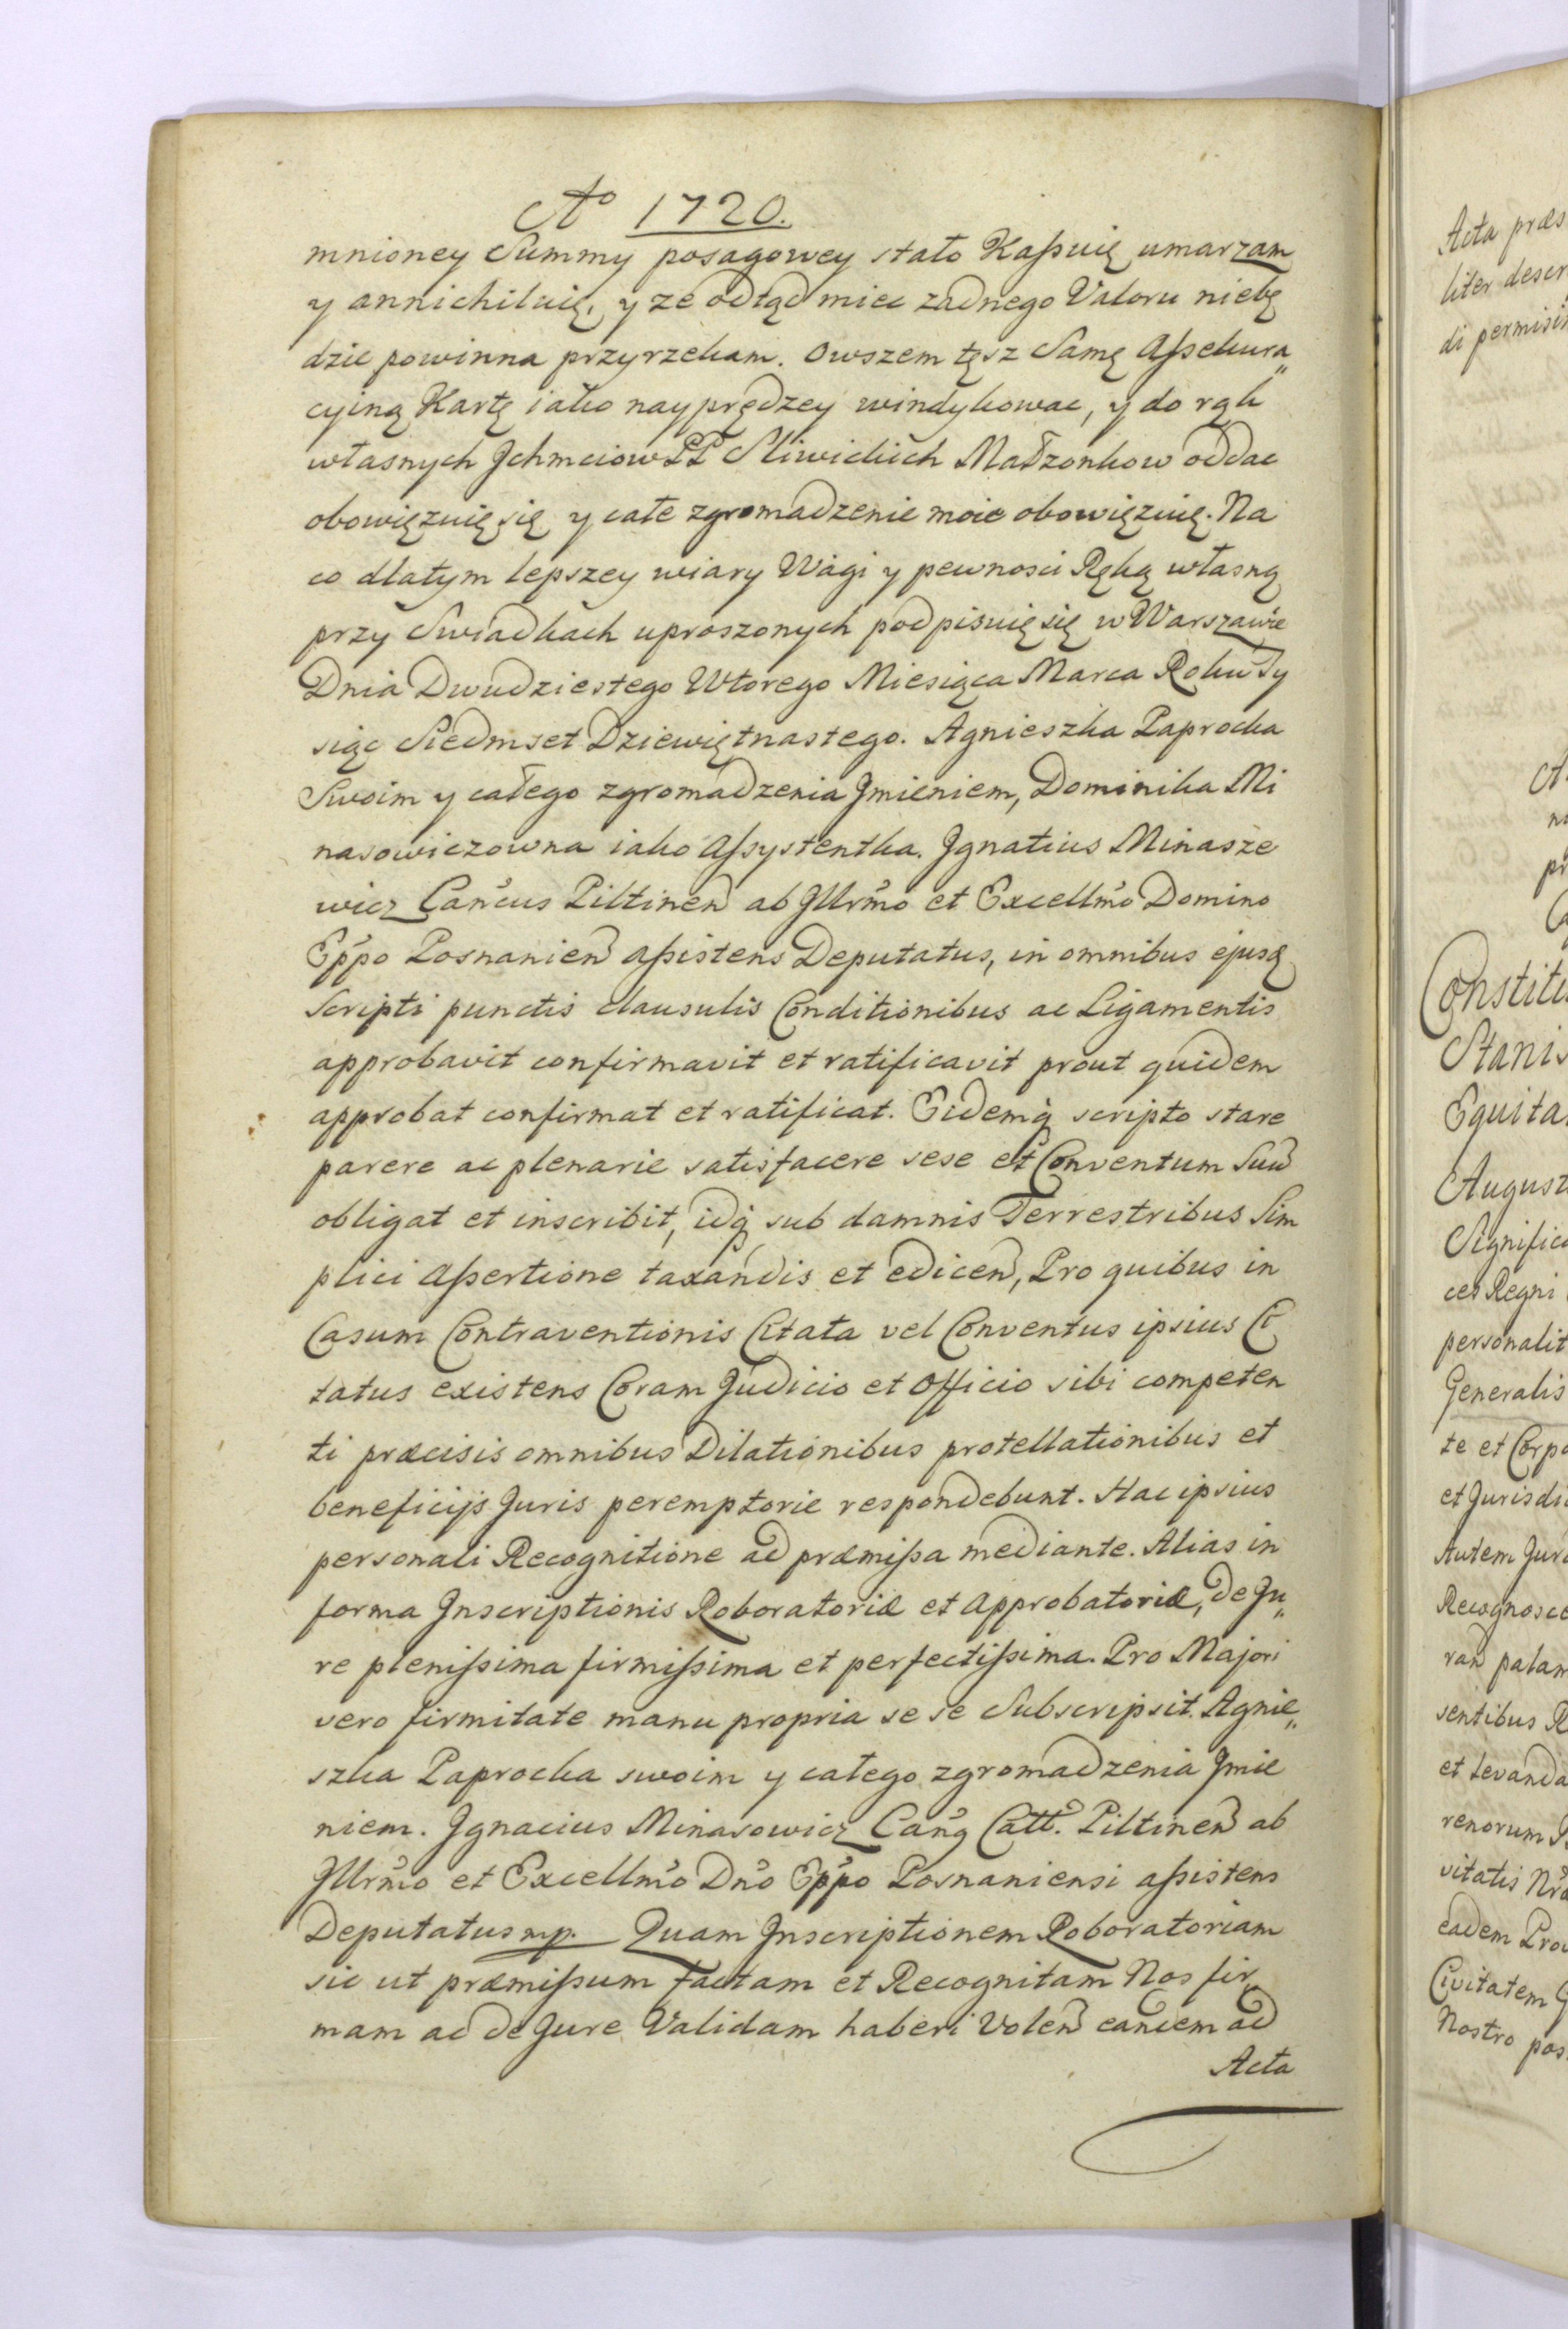 Aº 1720.
mnioney Summy posagowey stało Kaſsuię umarzam
y annichiluię, y ze odtąd miec zadnego Valoru niebę
dzie powinna przyrzekam. Owszem tęsz Samę Aſsekura„
cyiną Kartę iako nayprędzey windykowac, y do rąk
własnych Jchmciow PP Sliwickich Małzonkow oddac
obowięzuię się y całe zgromadzenie moie obowięzuię. Na
co dlatym lepszey wiary Wagi y pewnosci Ręką własną
przy Swiadkach uproszonych podpisuię się w Warszawie
Dnia Dwudziestego Wtorego Miesiąca Marca Roku Ty
siąc Siedmset Dziewiętnastego. Agnieszka Paprocka
Swoim y całego zgromadzenia Jmieniem, Dominika Mi
nasowiczowna iako Aſsystentka. Jgnatius Minasze
wicz Canćus Piltinen ab Jllrmo et Excellmo Domino
Eppo Posnanien aſsistens Deputatus, in omnibus ejusq
scripti punctis clausulis Conditionibus ac Ligamentis
approbavit confirmavit et ratificavit prout quidem
approbat confirmat et ratificat. Eidemq scripto stare
parere ac plenarie satisfacere sese et Conventum Suu
obligat et inscribit, idq sub damnis Terrestribus Sim
plici Aſsertione taxandis et edicen, Pro quibus in
Casum Contraventionis Citata vel Conventus ipsius Ci
tatus existens Coram Judicio et Officio sibi competen
ti præcisis omnibus Dilationibus protellationibus et
beneficijs Juris peremptorie respondebunt. Hac ipsius
personali Recognitione ad præmiſsa mediante. Alias in
forma Jnscriptionis Roboratoriæ et Approbatoriæ, de Ju„
re pleniſsima firmiſsima et perfectiſsima. Pro Majori
vero firmitate manu propria se se Subscripsit. Agnie„
szka Paprocka swoim y całego zgromadzenia Jmie
niem. Jgnacius Minasowicz Canq Catt. Piltinen ab
Jllrmo et Excellmo Dno Eppo Posnaniensi aſsistens
Deputatus mp. Quam Jnscriptionem Roboratoriam
sic ut præmiſsum factam et Recognitam Nos fir
mam ac de Jure Validam haberi Volen eandem ad
Acta
Acta præs
liter descr
di permisi
Constitu
Stanis
Equita
August
Significa
ces Regni
personalit
Generalis
te et Corpo
et Jurisdi
Autem Jure
Recognosce
ran palam
sentibus R
et levanda
renorum
vitatis Nræ
eadem Prov
Civitatem
Nostro pos